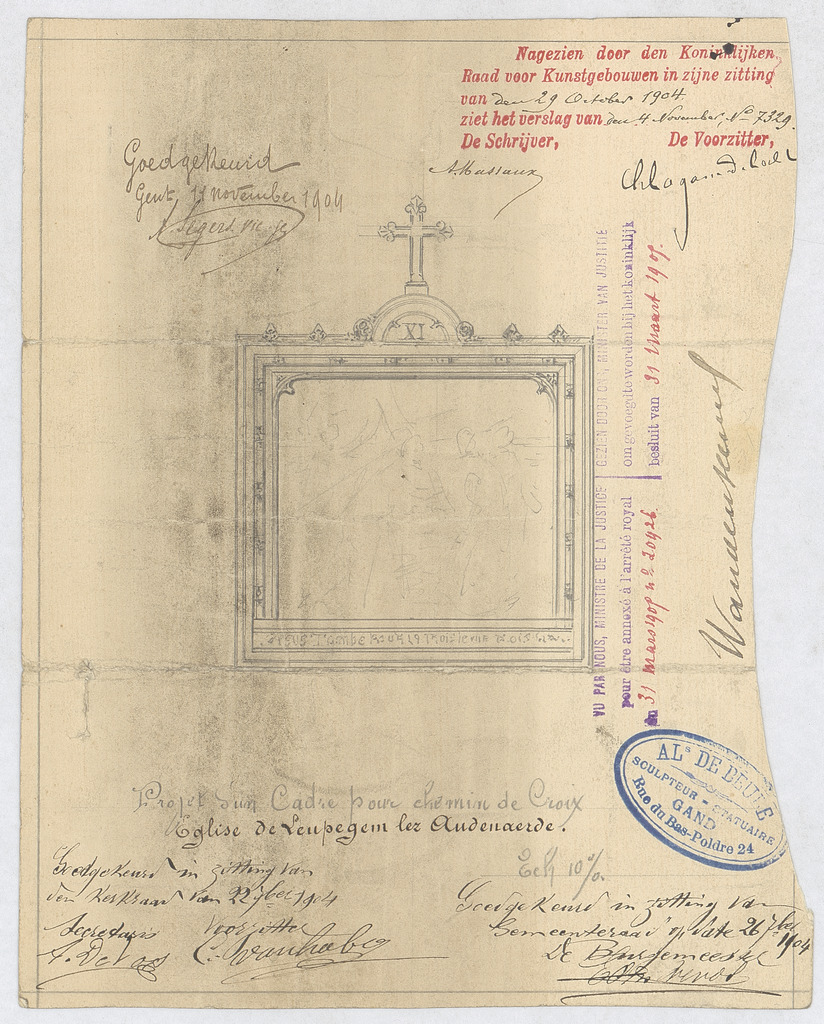 Nagezien door den Koninklijken
Raad voor Kunstgebouwen in zijne zitting
van den 29 October 1904
ziet het verslag van den 4 November, No 7329.
De Schrijver, De Voorzitter,
A. Massaux
Goedgekeurd
Gent, 11 november 1904
XI
VU PAR NOUS, MINISTRE DE LA JUSTICE
pour être annexé à l'arrêté royal
du 31 mars 1905 no 20926
GEZIEN DOOR ONS, MINISTER VAN JUSTITIE
om gevoegd te worden bij het koninklijk
besluit van 31 Maart 1905.
Jesus Tombe Pour la Troisieme Fois
ALs DE BEULE
SCULPTEUR - STATUAIRE
GAND
Rue du Bas-Poldre 24
Projet d'un Cadre pour chemin de Croix
Eglise de Leupegem lez Audenaerde.
Ech 10%.
Goedgekeurd in zitting van
den Kerkraad van 22 7ber 1904
Secretaris Voorzitter
A. De Vos
Goedgekeurd in zitting van
Gemeenteraad op date 26 7ber
1904
De Burgemeester